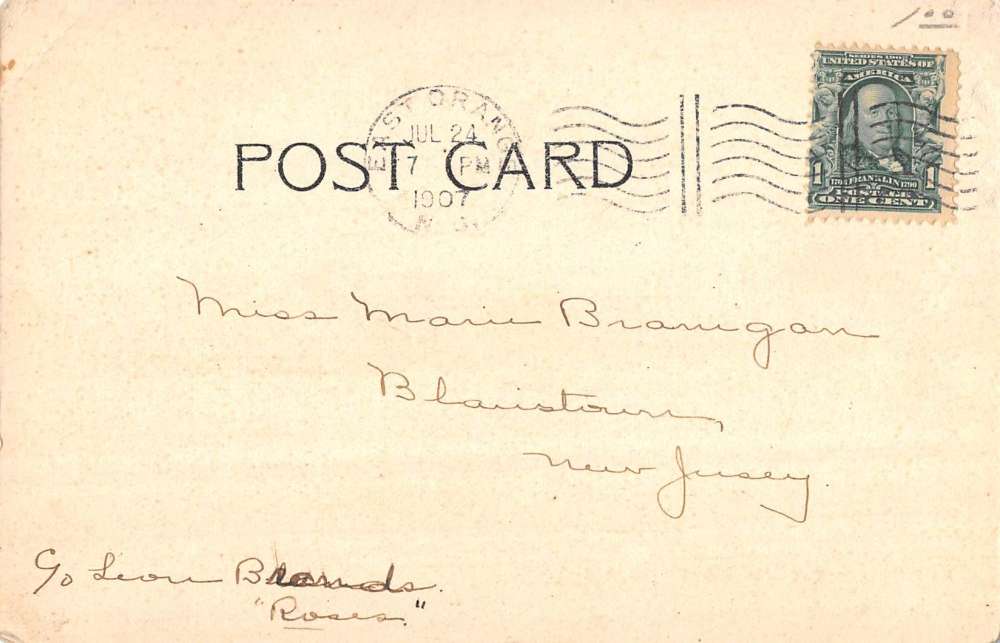 1.00
SERIES 1902
UNITED STATES OF
AMERICA
1706 FRANKLIN 1790
POSTAGE
1 ONE CENT 1
EAST ORANGE
JUL 24
7 PM
1907
N.J.
POST CARD
Miss Marie Branigan
Blairstown,
New Jersey
C/o Leon Brands.
"Roses."